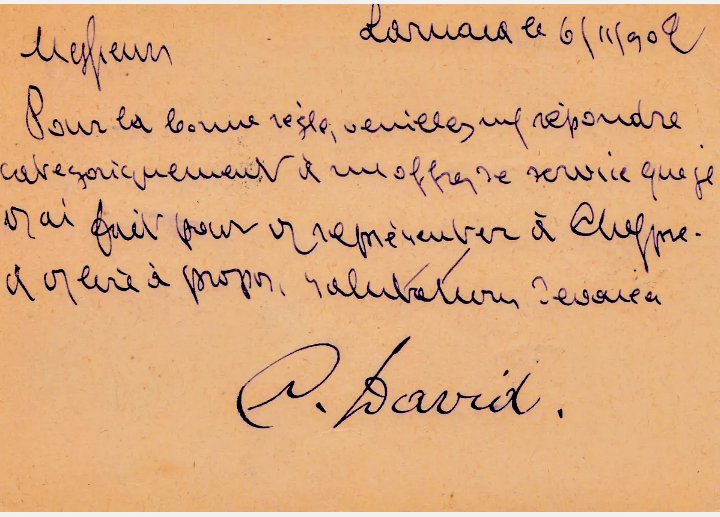 Larnaca le 6/11/902
Messieurs
Pour la bonne règle, veuillez me répondre
catégoriquement à mes offres de service que je
vs ai fait pour vs représenter à Chypre.
à propos, salutations
C. David.